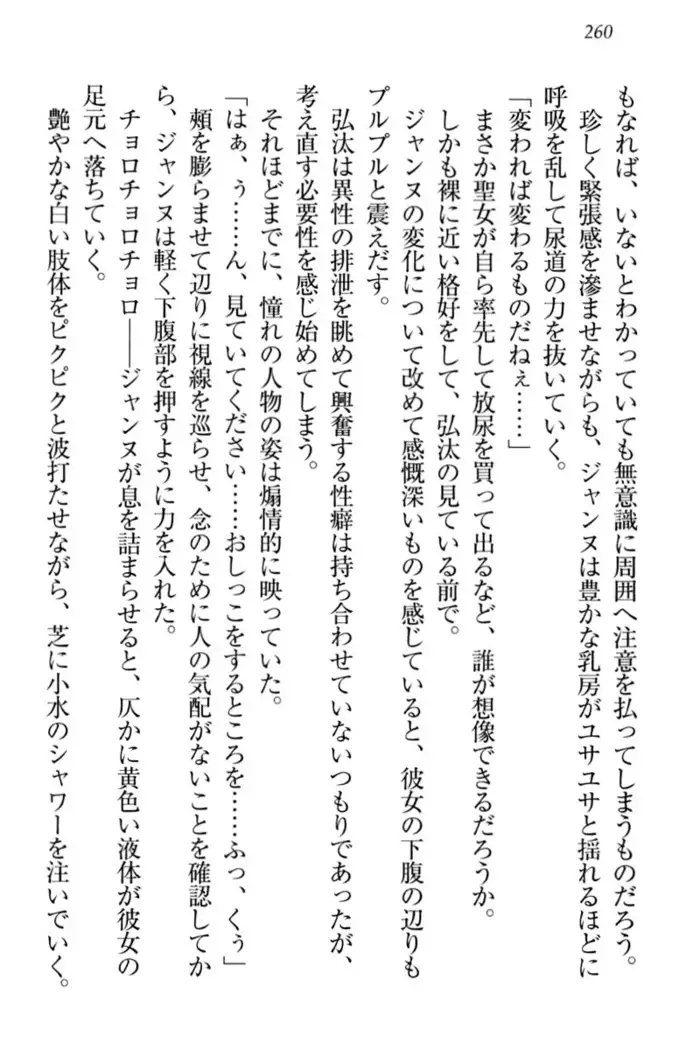 260
もなれば、いないとわかっていても無意識に周囲へ注意を払ってしまうものだろう。
珍しく緊張感を滲ませながらも、ジャンヌは豊かな乳房がユサユサと揺れるほどに
呼吸を乱して尿道の力を抜いていく。
「変われば変わるものだねぇ……」
まさか聖女が自ら率先して放尿を買って出るなど、誰が想像できるだろうか。
しかも裸に近い格好をして、弘汰の見ている前で。
ジャンヌの変化について改めて感慨深いものを感じていると、彼女の下腹の辺りも
プルプルと震えだす。
弘汰は異性の排泄を眺めて興奮する性癖は持ち合わせていないつもりであったが、
考え直す必要性を感じ始めてしまう。
それほどまでに、憧れの人物の姿は煽情的に映っていた。
「はぁ、う……ん、見ていてください……おしっこをするところを……ふっ、くぅ」
頬を膨らませて辺りに視線を巡らせ、念のために人の気配がないことを確認してか
ら、ジャンヌは軽く下腹部を押すように力を入れた。
チョロチョロチョロ――ジャンヌが息を詰まらせると、仄かに黄色い液体が彼女の
足元へ落ちていく。
艶やかな白い肢体をピクピクと波打たせながら、芝に小水のシャワーを注いでいく。